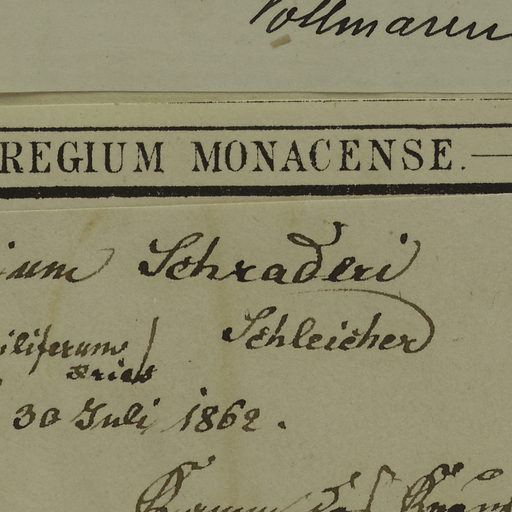 Vollmaren
REGIUM MONACENSE.—
ium Schraderi
Schleicher
iliferum
Fries
30 Juli 1862.